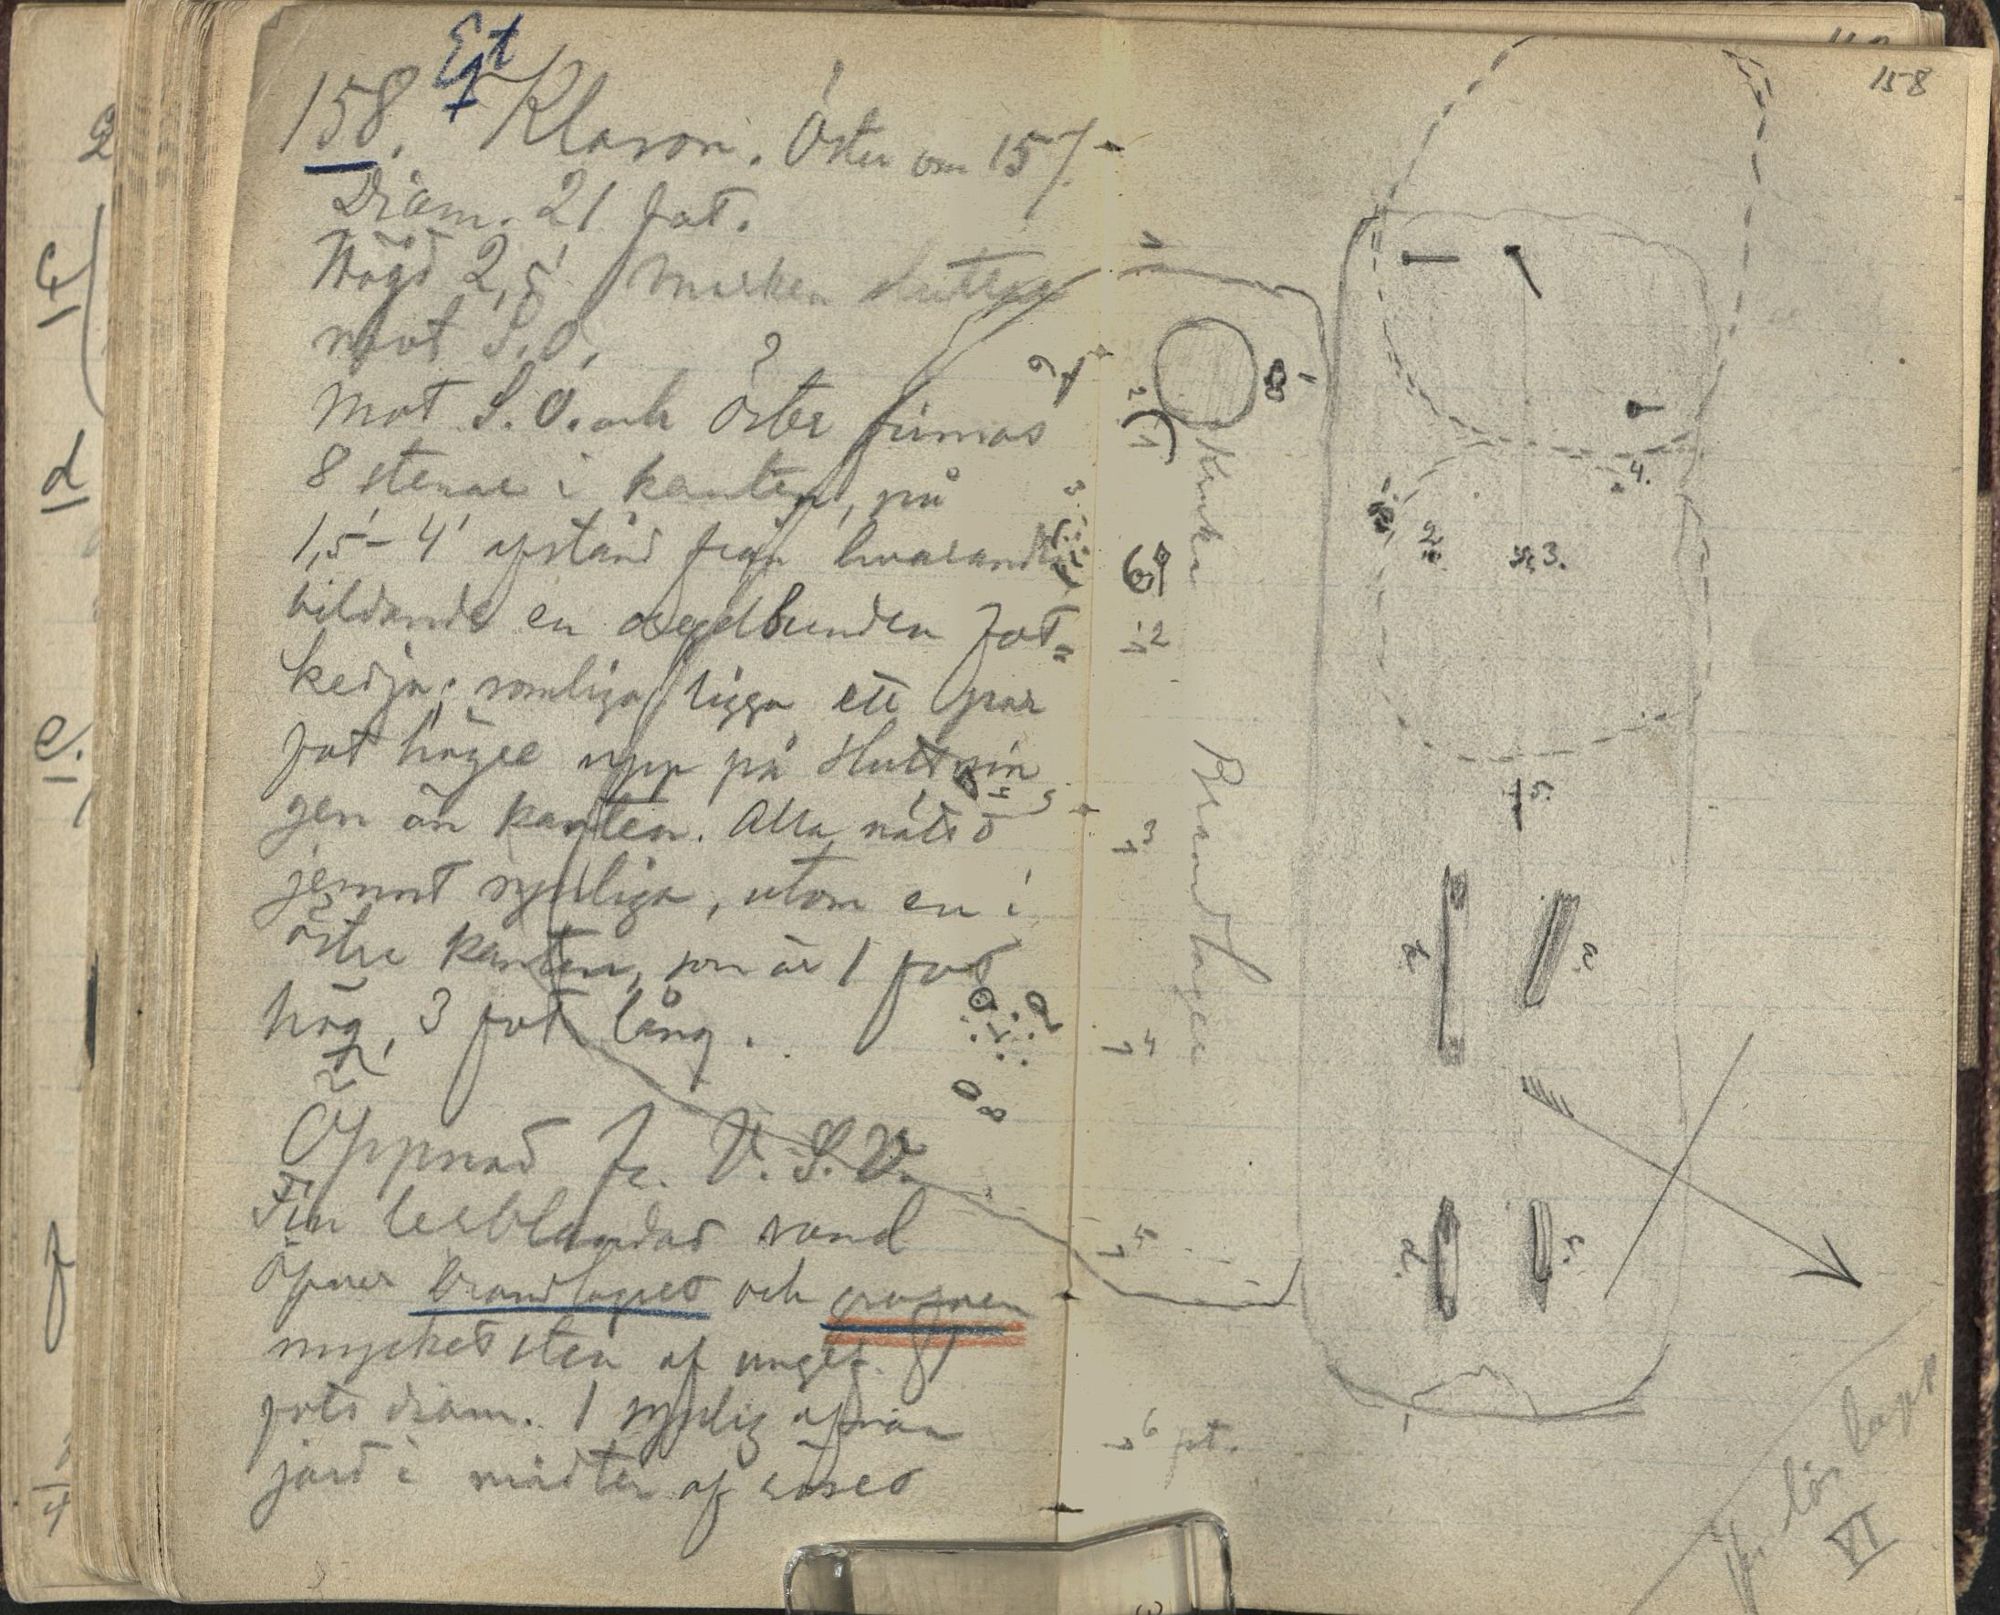 Eqt
158. Klason. Öster om 157.
Diam. 21 fot.
Högd 2,5' Marken sluttar
mot S.O.
Mot S.O. och Öster finnas
8 stenar i kanten, på
1,5'-4' afstånd från hvarandra
bildande en regelbunden fot-
kedja; somliga ligga ett par
fot högre upp på sluttnin
gen än kanten. Alla nätt o
jemnt synliga, utom en i
östre kanten, som är 1 fot
hög, 3 fot lång.
Öppnad fr. V.S.V.
Fin lerblandad sand
Öfver brandlagret och
mycket sten af ungef. 1
fots diam. 1 synlig ofvan
jord i midten af röset
158
1
2
Kruka
3
6
2
Brandlager
3
4
5
6 ft.
1.
2.
3.
4.
5.
7
8
VI